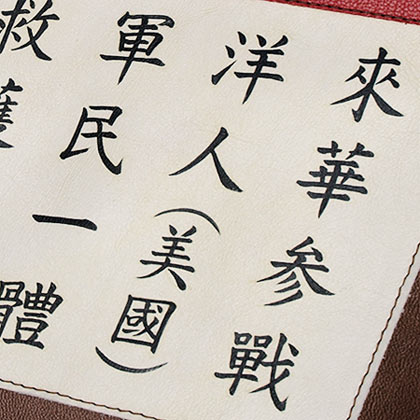 來華參戰
洋人(美國)
軍民一
救護體